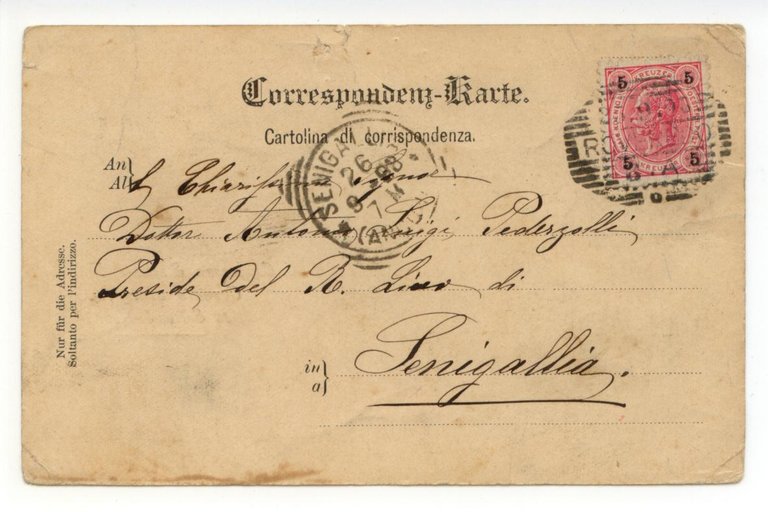 Correspondenz-Karte.
Cartolina di corrispondenza.
An
Al
Chiarissimo Signor
Dottor Antonio Luigi Pederzolli
Preside del R. Liceo di
in
a
Senigallia.
Nur für die Adresse.
Soltanto per l'indirizzo.
SENIGALLIA
26
8 98
7 M
(AN
5 KREUZER 5
5 5